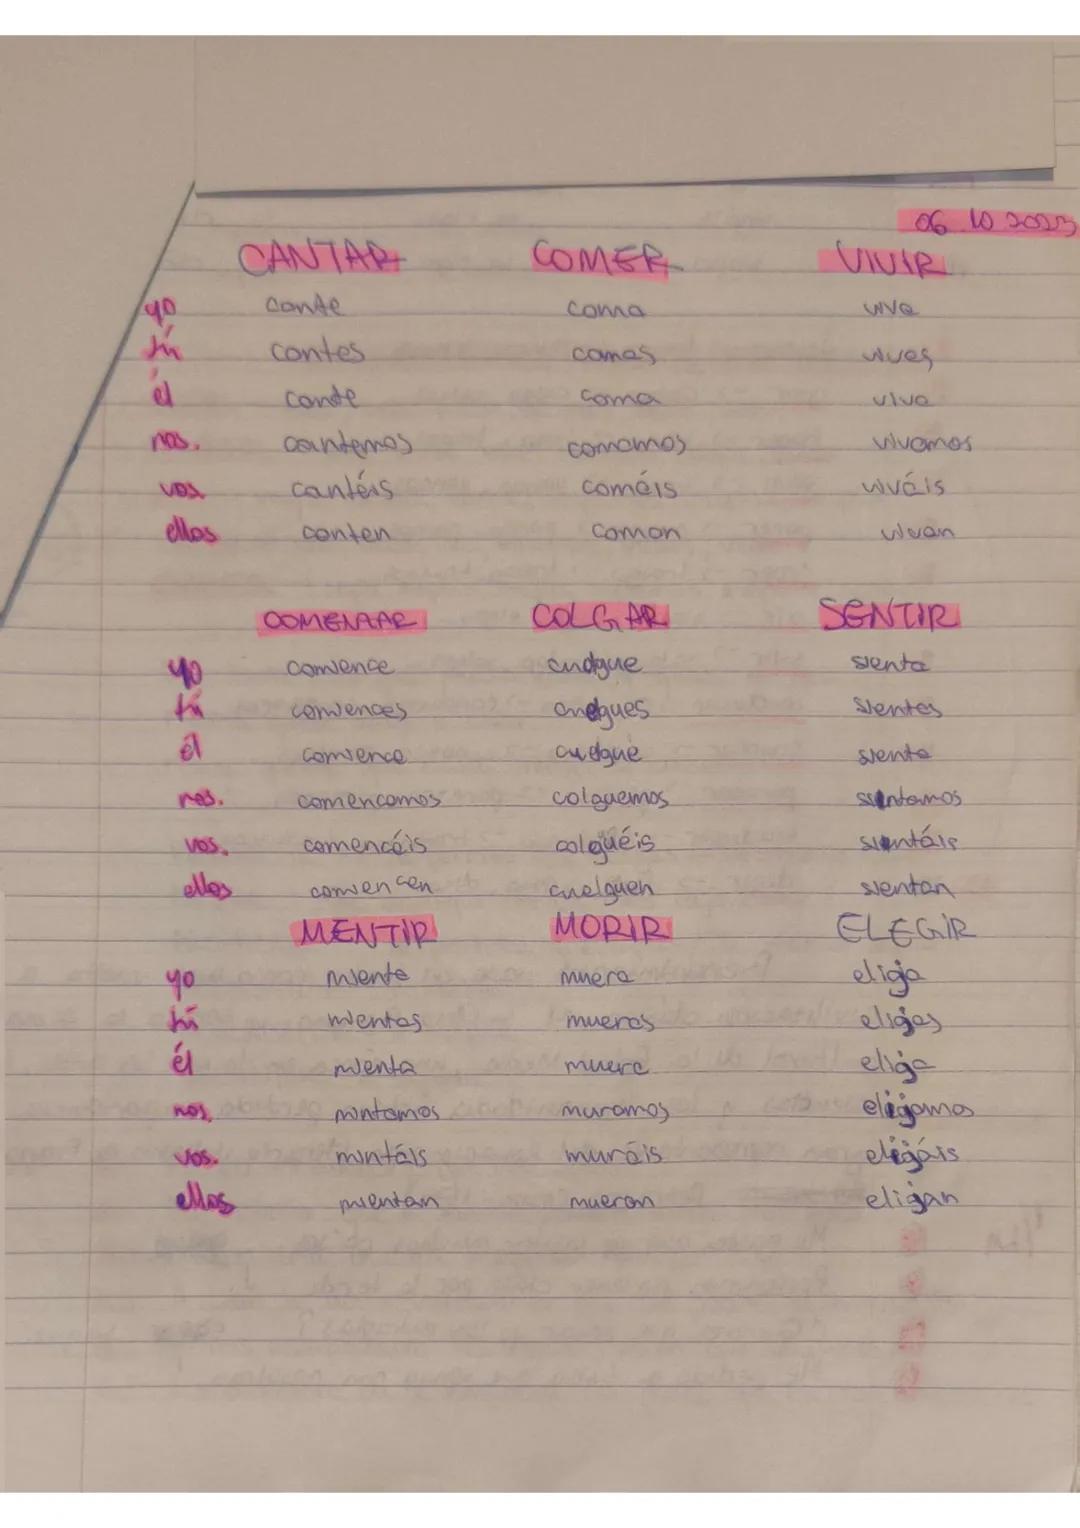 06.10.2023
CANTAR COMER VIVIR
yo cante coma viva
tú cantes comas vivas
él cante coma viva
nos. cantemos comamos vivamos
vos. cantéis comáis viváis
ellos canten coman vivan
COMENZAR COLGAR SENTIR
yo comience cuelgue sienta
tú comiences cuelgues sientas
él comience cuelgue sienta
nos. comencemos colguemos sintamos
vos. comencéis colguéis sintáis
ellos comiencen cuelguen sientan
MENTIR MORIR ELEGIR
yo mienta muera elija
tú mientas mueras elijas
él mienta muera elija
nos. mintamos muramos elijamos
vos. mintáis muráis elijáis
ellos mientan mueran elijan